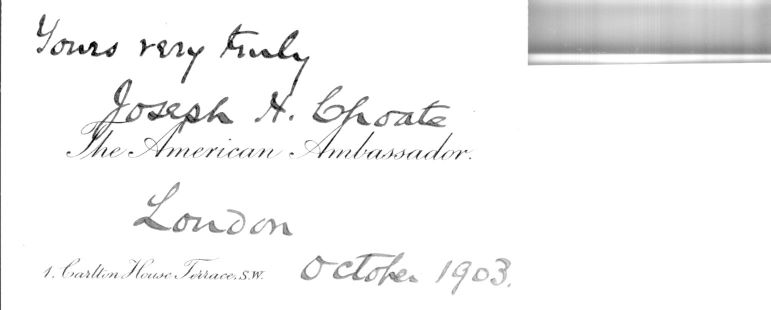 Yours very truly
Joseph H. Choate
The American Ambassador.
London
1. Carlton House Terrace. S.W. October 1903.